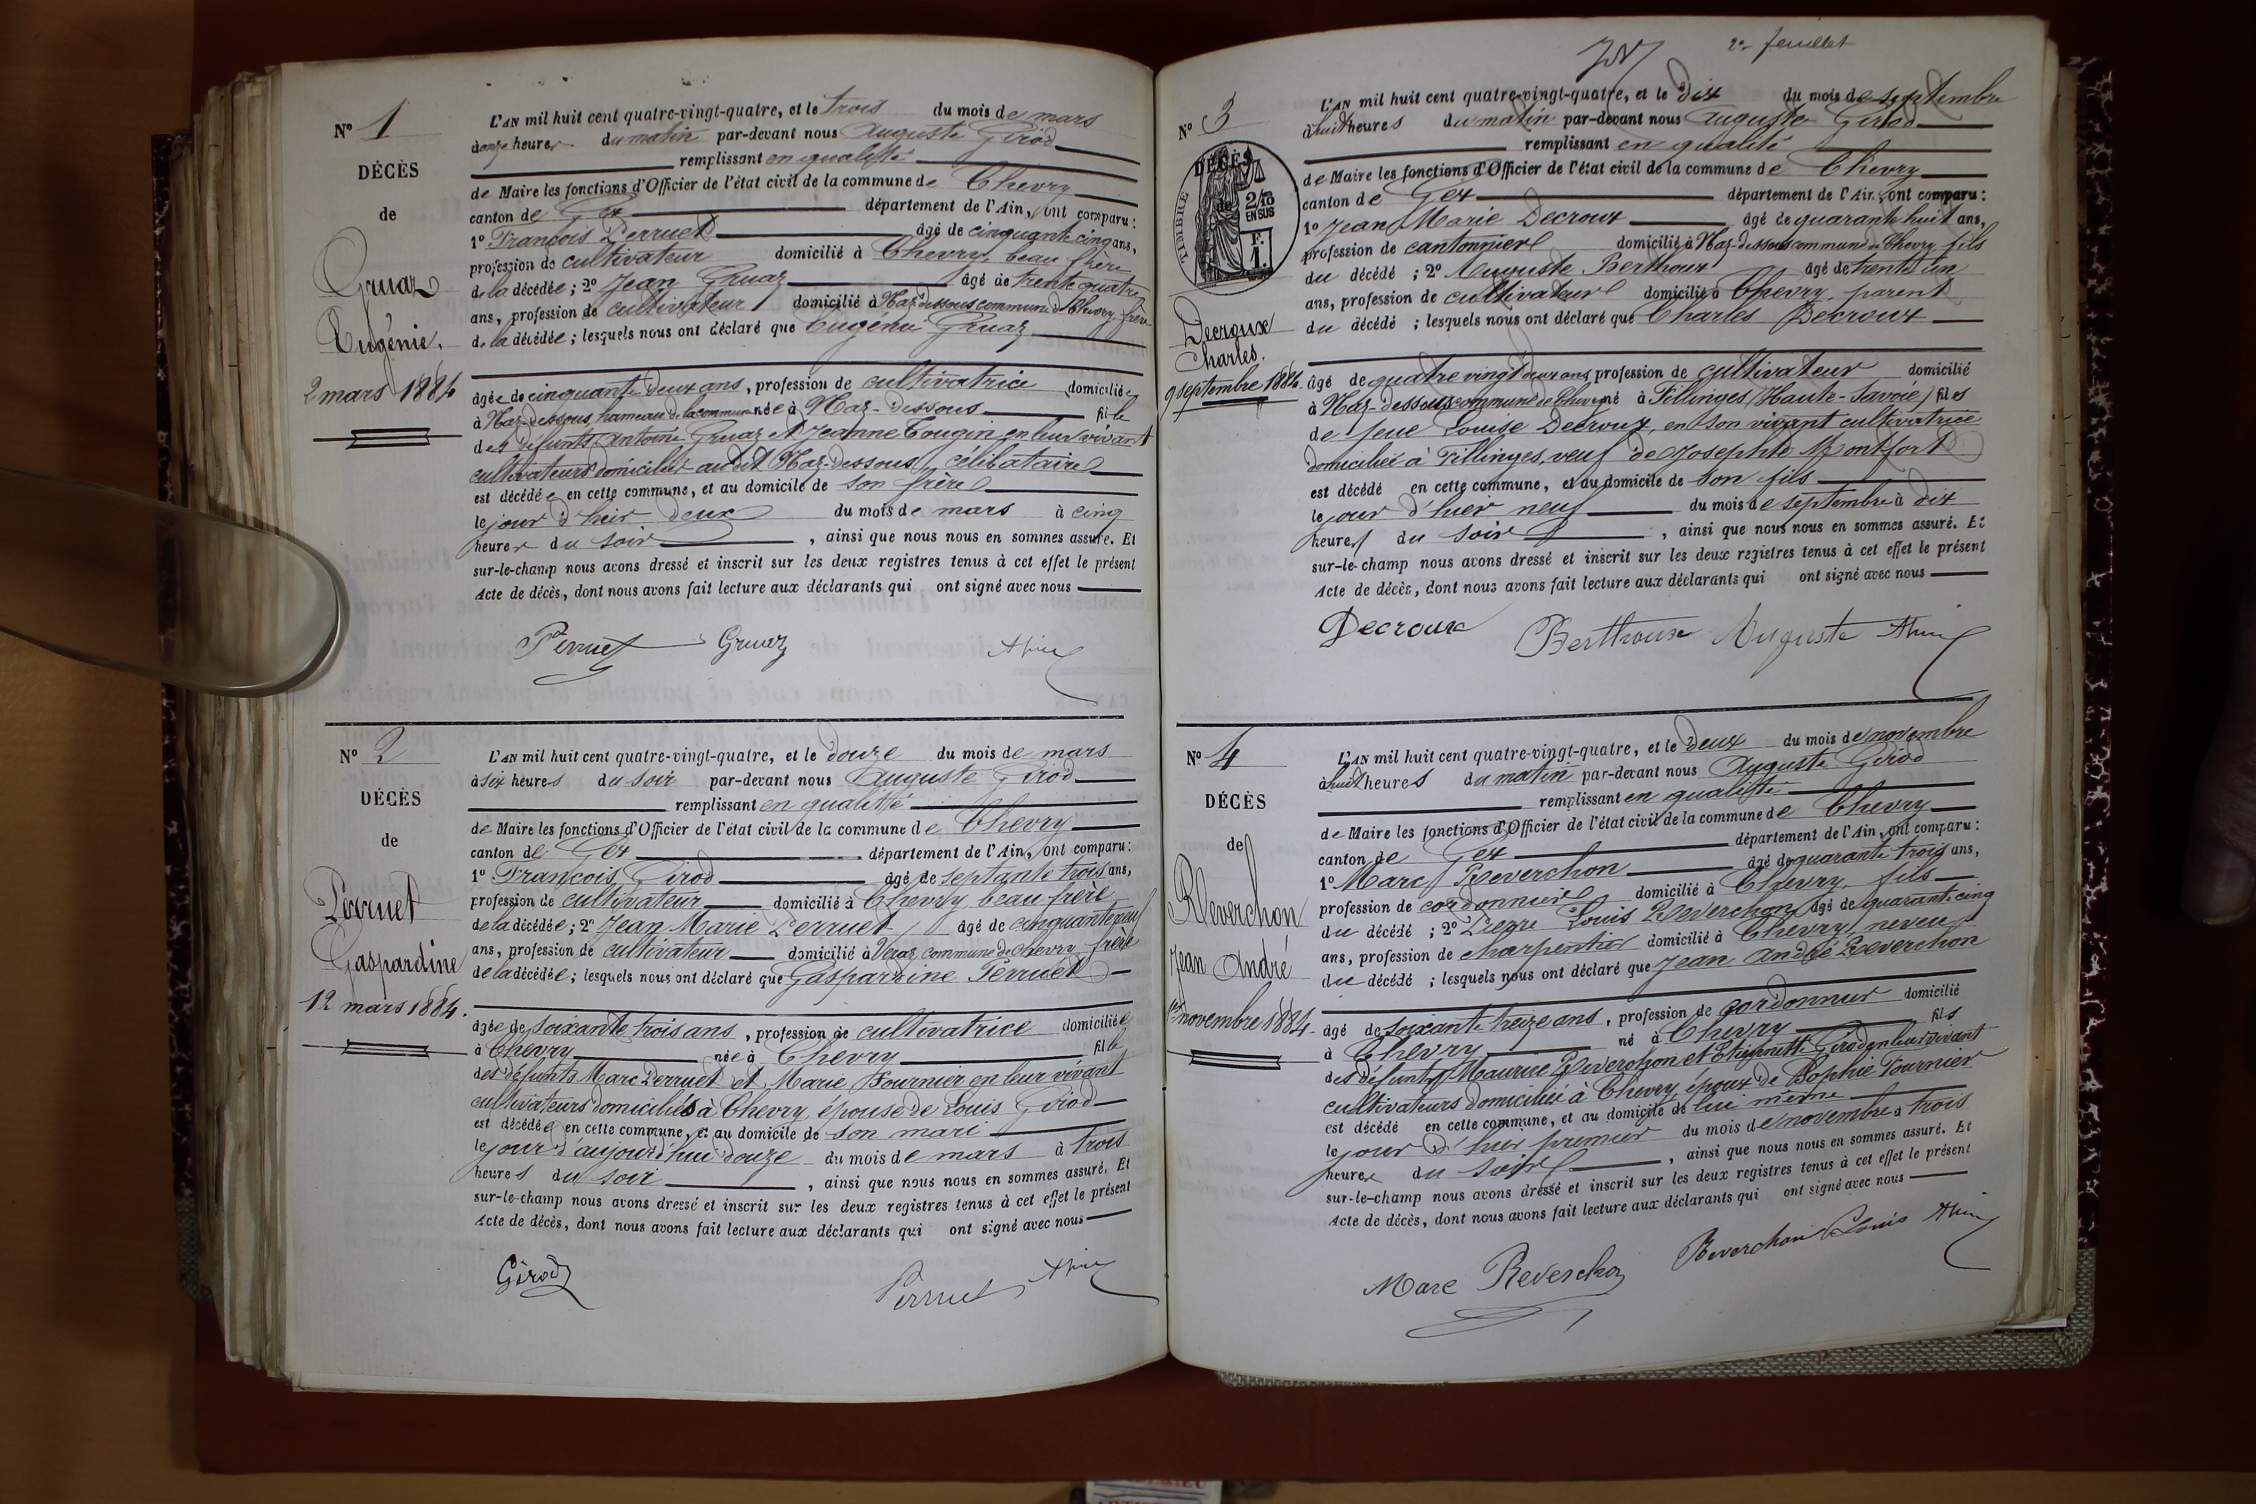 N° 1
DÉCÈS
de
Gruaz
Eugénie.
2 mars 1884
L'AN mil huit cent quatre-vingt-quatre, et le trois du mois de mars
à onze heures du matin par-devant nous Auguste Girod
remplissant en qualité
de Maire les fonctions d'Officier de l'état civil de la commune de Chevry
canton de Gex département de l'Ain, ont comparu :
1° François Perruet âgé de cinquante cinq ans,
profession de cultivateur domicilié à Chevry, beau frère
de la décédée ; 2° Jean Gruaz âgé de trente quatre
ans, profession de cultivateur domicilié à Naz-dessous commune de Chevry, frère
de la décédée ; lesquels nous ont déclaré que Eugénie Gruaz
âgée de cinquante deux ans, profession de cultivatrice domiciliée
à Naz-dessous, hameau de la commune née à Naz-Dessous fille
des défunts Antoine Gruaz et Jeanne Cougin en leur vivant
cultivateurs domiciliés audit Naz-dessous, célibataire
est décédée en cette commune, et au domicile de son frère
le jour d'hier deux du mois de mars à cinq
heures du soir , ainsi que nous nous en sommes assuré. Et
sur-le-champ nous avons dressé et inscrit sur les deux registres tenus à cet effet le présent
Acte de décès, dont nous avons fait lecture aux déclarants qui ont signé avec nous
Perruet Gruaz
N° 2
DÉCÈS
de
Perruet
Gaspardine
12 mars 1884.
L'AN mil huit cent quatre-vingt-quatre, et le douze du mois de mars
à six heures du soir par-devant nous Auguste Girod
remplissant en qualité
de Maire les fonctions d'Officier de l'état civil de la commune de Chevry
canton de Gex département de l'Ain, ont comparu :
1° François Girod âgé de septante trois ans,
profession de cultivateur domicilié à Chevry, beau frère
de la décédée ; 2° Jean Marie Perruet âgé de cinquante neuf
ans, profession de cultivateur domicilié à Veraz commune de Chevry, frère
de la décédée ; lesquels nous ont déclaré que Gaspardine Perruet
âgée de soixante trois ans, profession de cultivatrice domiciliée
à Chevry née à Chevry fille
des défunts Marc Perruet et Marie Fournier en leur vivant
cultivateurs domiciliés à Chevry, épouse de Louis Girod
est décédée en cette commune, et au domicile de son mari
le jour d'aujourd'hui douze du mois de mars à trois
heures du soir , ainsi que nous nous en sommes assuré. Et
sur-le-champ nous avons dressé et inscrit sur les deux registres tenus à cet effet le présent
Acte de décès, dont nous avons fait lecture aux déclarants qui ont signé avec nous
Girod Perruet
2e feuillet
N° 3
DÉCÈS
de
TIMBRE
2/10
EN SUS
F.
1.
Decroux
Charles.
9 septembre 1884.
L'AN mil huit cent quatre-vingt-quatre, et le dix du mois de septembre
à huit heures du matin par-devant nous Auguste Girod
remplissant en qualité
de Maire les fonctions d'Officier de l'état civil de la commune de Chevry
canton de Gex département de l'Ain, ont comparu :
1° Jean Marie Decroux âgé de quarante huit ans,
profession de cantonnier domicilié à Naz-dessous commune de Chevry, fils
du décédé ; 2° Auguste Berthoux âgé de trente un
ans, profession de cultivateur domicilié à Chevry, parent
du décédé ; lesquels nous ont déclaré que Charles Decroux
âgé de quatre vingt deux ans, profession de cultivateur domicilié
à Naz-dessous commune de Chevry né à Fillinges (Haute-Savoie) fils
de feue Louise Decroux, en son vivant cultivatrice
domiciliée à Fillinges, veuf de Josephte Montfort
est décédé en cette commune, et au domicile de son fils
le jour d'hier neuf du mois de septembre à dix
heures du soir , ainsi que nous nous en sommes assuré. Et
sur-le-champ nous avons dressé et inscrit sur les deux registres tenus à cet effet le présent
Acte de décès, dont nous avons fait lecture aux déclarants qui ont signé avec nous
Decroux Berthoux Auguste
N° 4
DÉCÈS
de
Reverchon
Jean André
1er novembre 1884.
L'AN mil huit cent quatre-vingt-quatre, et le deux du mois de novembre
à huit heures du matin par-devant nous Auguste Girod
remplissant en qualité
de Maire les fonctions d'Officier de l'état civil de la commune de Chevry
canton de Gex département de l'Ain, ont comparu :
1° Marc Reverchon âgé de quarante trois ans,
profession de cordonnier domicilié à Chevry, fils
du décédé ; 2° Pierre Louis Reverchon âgé de quarante cinq
ans, profession de charpentier domicilié à Chevry, neveu
du décédé ; lesquels nous ont déclaré que Jean André Reverchon
âgé de soixante treize ans, profession de cordonnier domicilié
à Chevry né à Chevry fils
des défunts Maurice Reverchon et Etiennette Girod en leur vivant
cultivateurs domiciliés à Chevry, époux de Sophie Fournier
est décédé en cette commune, et au domicile de lui même
le jour d'hier premier du mois de novembre à trois
heures du soir , ainsi que nous nous en sommes assuré. Et
sur-le-champ nous avons dressé et inscrit sur les deux registres tenus à cet effet le présent
Acte de décès, dont nous avons fait lecture aux déclarants qui ont signé avec nous
Marc Reverchon Reverchon Louis